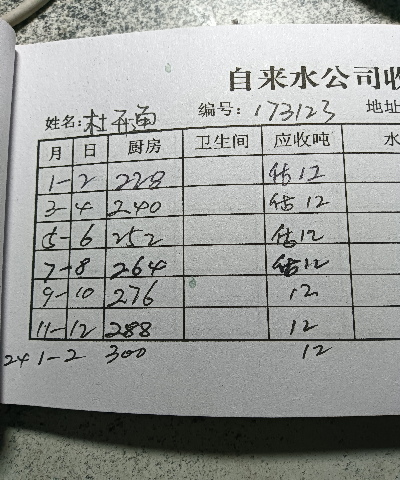 自来水公司收
姓名: 杜开通 编号: 173123 地址
月 日 厨房 卫生间 应收吨 水
1-2 228 估12
3-4 240 估12
5-6 252 估12
7-8 264 估12
9-10 276 12
11-12 288 12
24 1-2 300 12